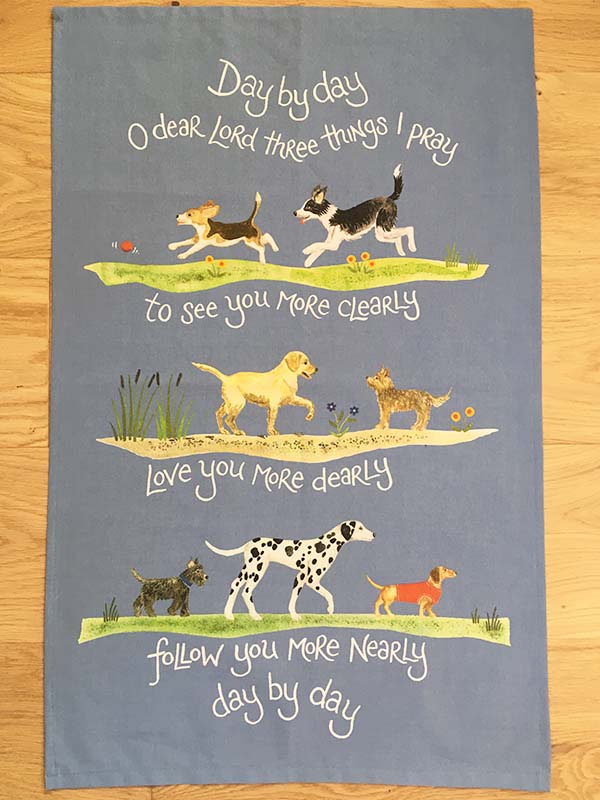 Day by day
O dear Lord three things I pray
to see you more clearly
Love you more dearly
follow you more nearly
day by day